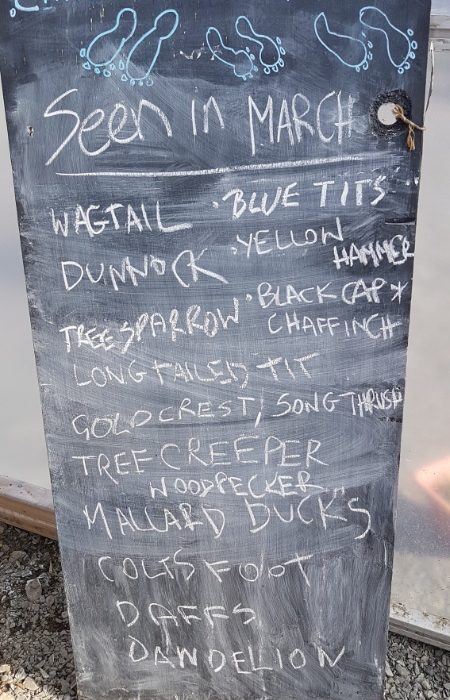 Seen in MARCH
WAGTAIL · BLUE TITS
DUNNOCK · YELLOW HAMMER
TREE SPARROW · BLACK CAP *
CHAFFINCH
LONG TAILED TIT
GOLDCREST / SONG THRUSH
TREE CREEPER
WOODPECKER
MALLARD DUCKS
COLTSFOOT
DAFFS
DANDELION